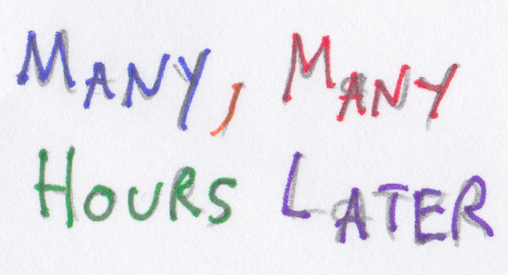 Many, Many
Hours Later